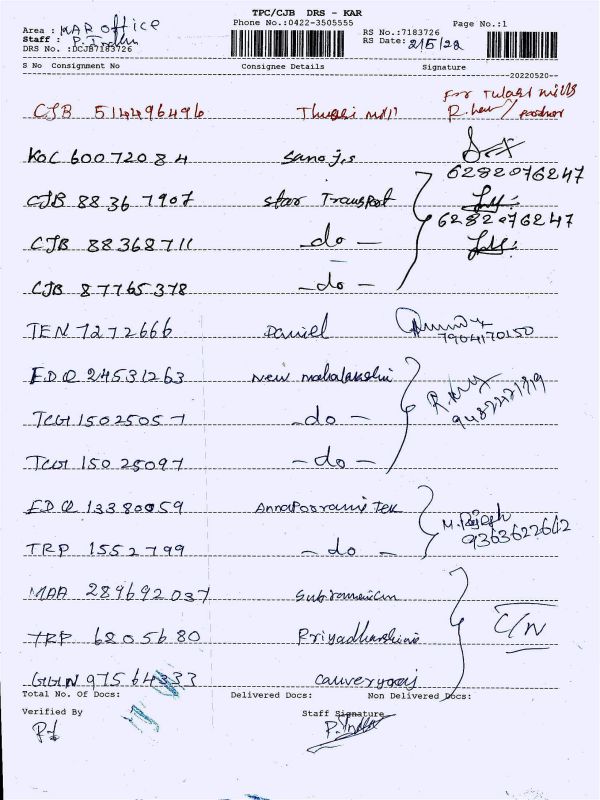 TPC/CJB DRS - KAR
Phone No.:0422-3505555
Page No.:1
Area : KAR office
Staff :
DRS No. :DCJB7183726
RS No.:7183726
RS Date: 2/5/22
S No Consignment No Consignee Details Signature
--20220520--
For Tulasi mills
CJB 514496496 Thulasi mill
KOC 60072084 Sanojs
6282076247
CJB 88367907 Star Transport
6282076247
CJB 88368711 -do-
CJB 87765378 -do-
TEN 7272666 Daniel
7904170150
EDQ 24531263 New mahalakshmi
TCG 15025057 -do-
TCG 15025097 -do-
EDQ 13380059 Annapoorani Tex
M. Rajesh
9363622642
TRP 1552799 -do-
MAA 289692037 Subramanian
C/N
TRP 6205680 Priyadharshini
GGN 97564333 Cauveryraj
Total No. Of Docs: Delivered Docs: Non Delivered Docs:
Verified By Staff Signature